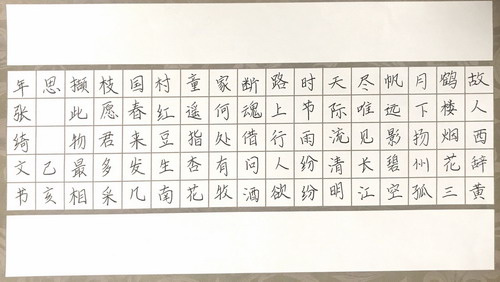 故人西辞黄
鹤楼烟花三
月下扬州孤
帆远影碧空
尽唯见长江
天际流清明
时节雨纷纷
路上行人欲
断魂借问酒
家何处有牧
童遥指杏花
村红豆生南
国春来发几
枝愿君多采
撷此物最相
思乙亥
年张绮文节